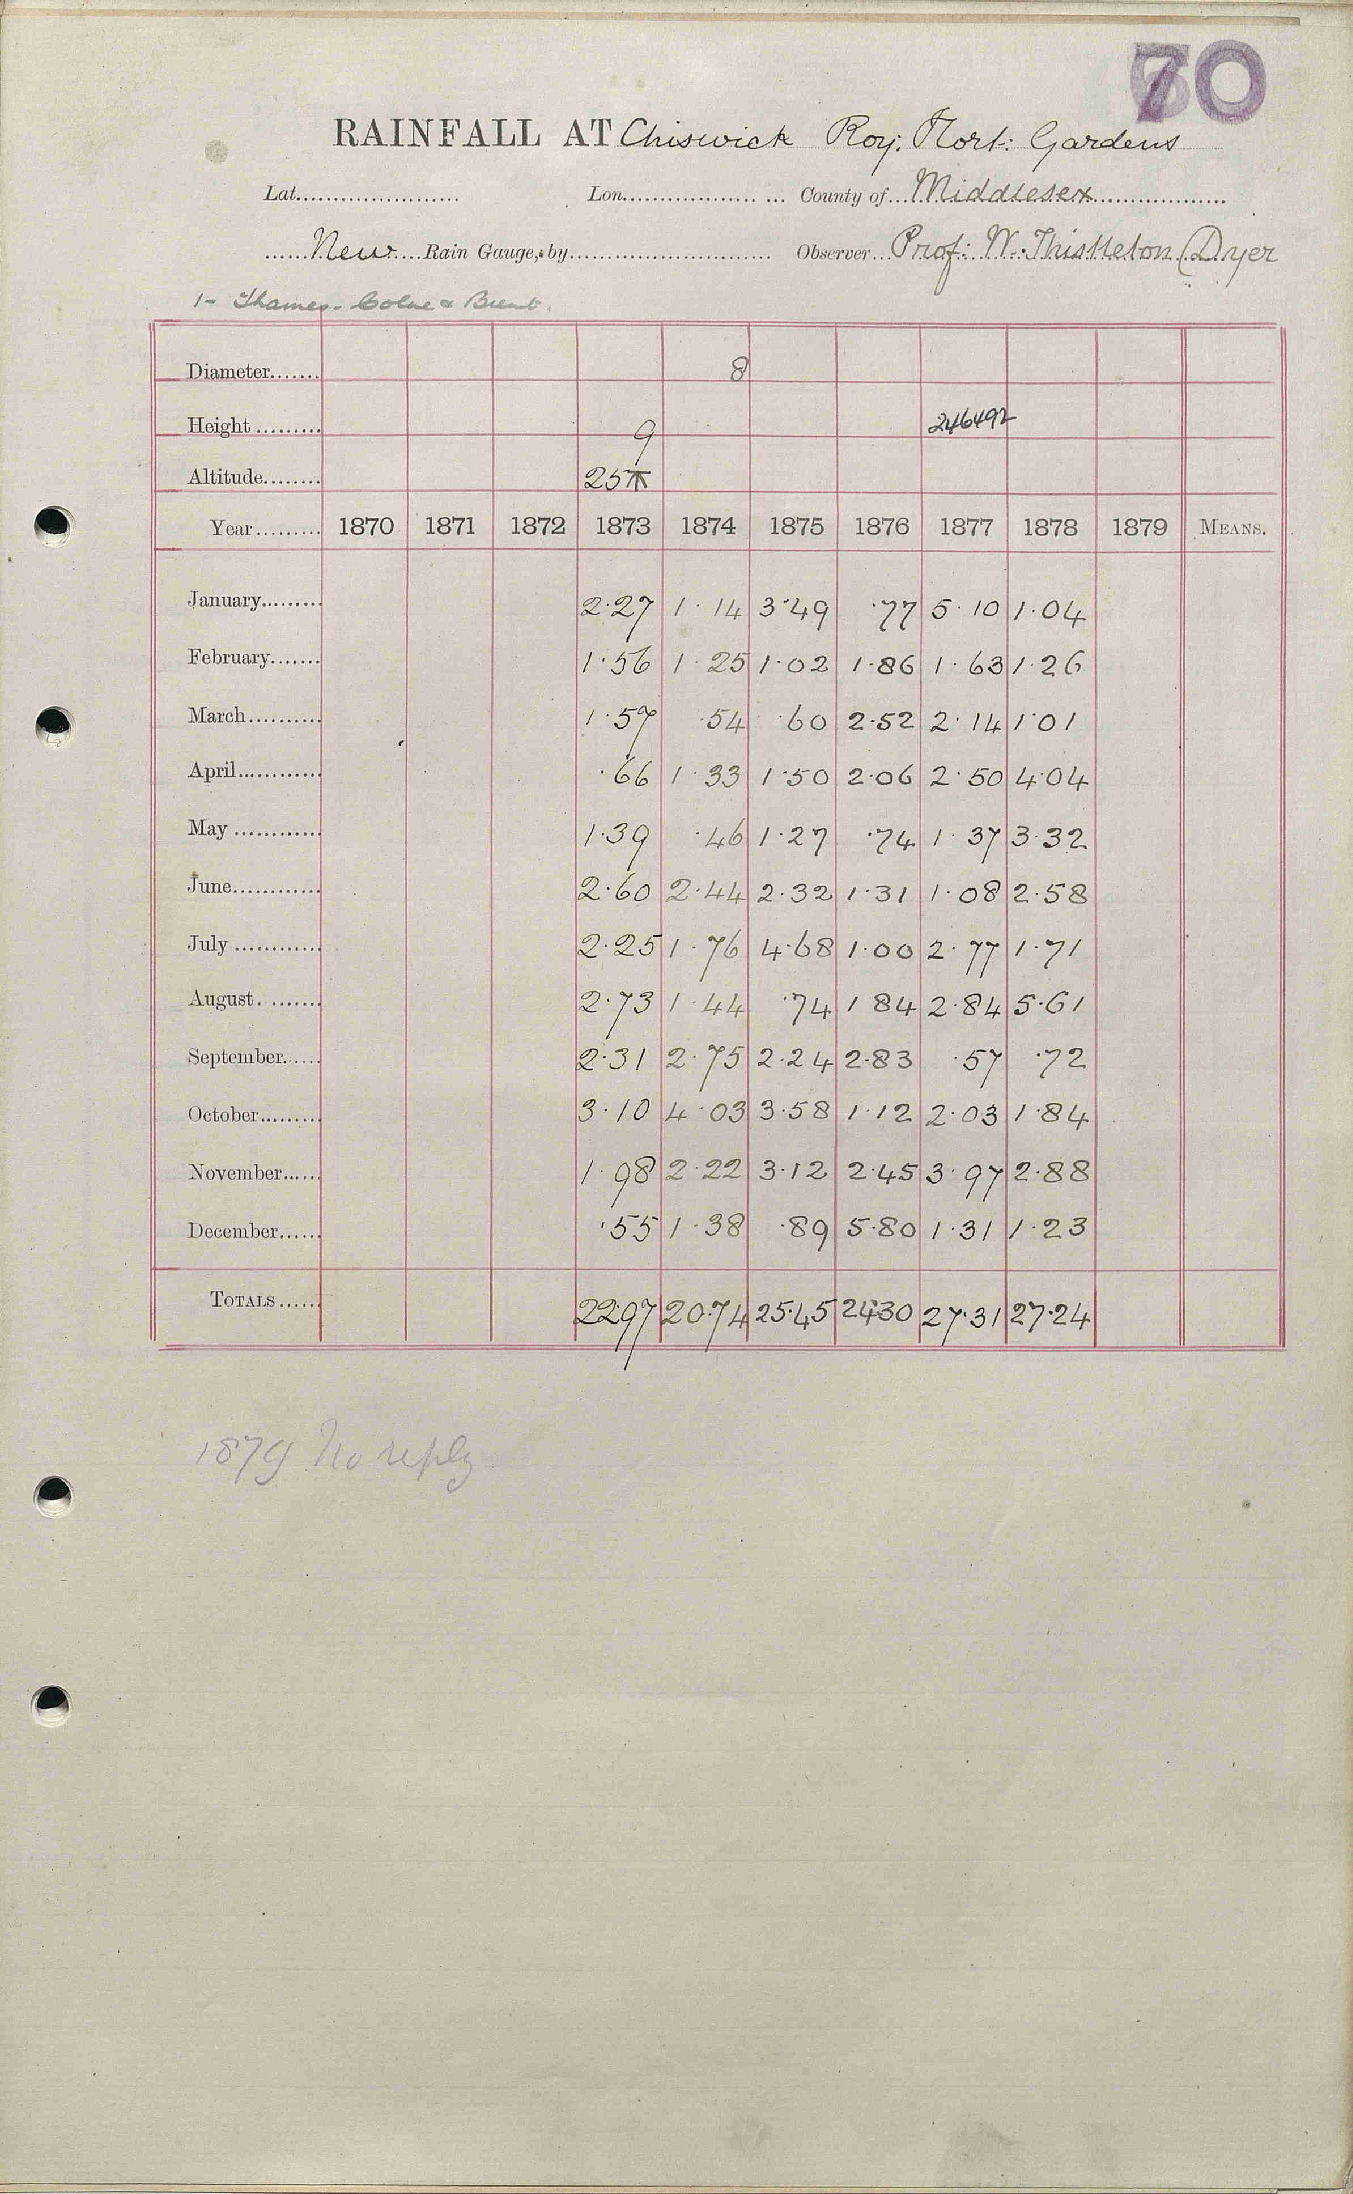 70
RAINFALL AT Chiswick Roy. Hort: Gardens
Lat...................... Lon................... ... County of...Middlesex...................
......New....Rain Gauge, by............................. Observer...Prof: W. Thistleton Dyer
1- Thames. Colne & Brent.
Diameter....... 8
Height ......... 9 246492
Altitude........ 25
Year......... 1870 1871 1872 1873 1874 1875 1876 1877 1878 1879 MEANS.
January......... 2.27 1.14 3.49 .77 5.10 1.04
February....... 1.56 1.25 1.02 1.86 1.63 1.26
March.......... 1.57 .54 .60 2.52 2.14 1.01
April............ .66 1.33 1.50 2.06 2.50 4.04
May ............ 1.39 .46 1.27 .74 1.37 3.32
June............ 2.60 2.44 2.32 1.31 1.08 2.58
July ............ 2.25 1.76 4.68 1.00 2.77 1.71
August. ....... 2.73 1.44 .74 1 84 2.84 5.61
September...... 2.31 2.75 2.24 2.83 .57 .72
October......... 3.10 4.03 3.58 1.12 2.03 1.84
November...... 1.98 2.22 3.12 2.45 3.97 2.88
December...... .55 1.38 .89 5.80 1.31 1.23
TOTALS...... 22.97 20.74 25.45 24.30 27.31 27.24
1879 No reply